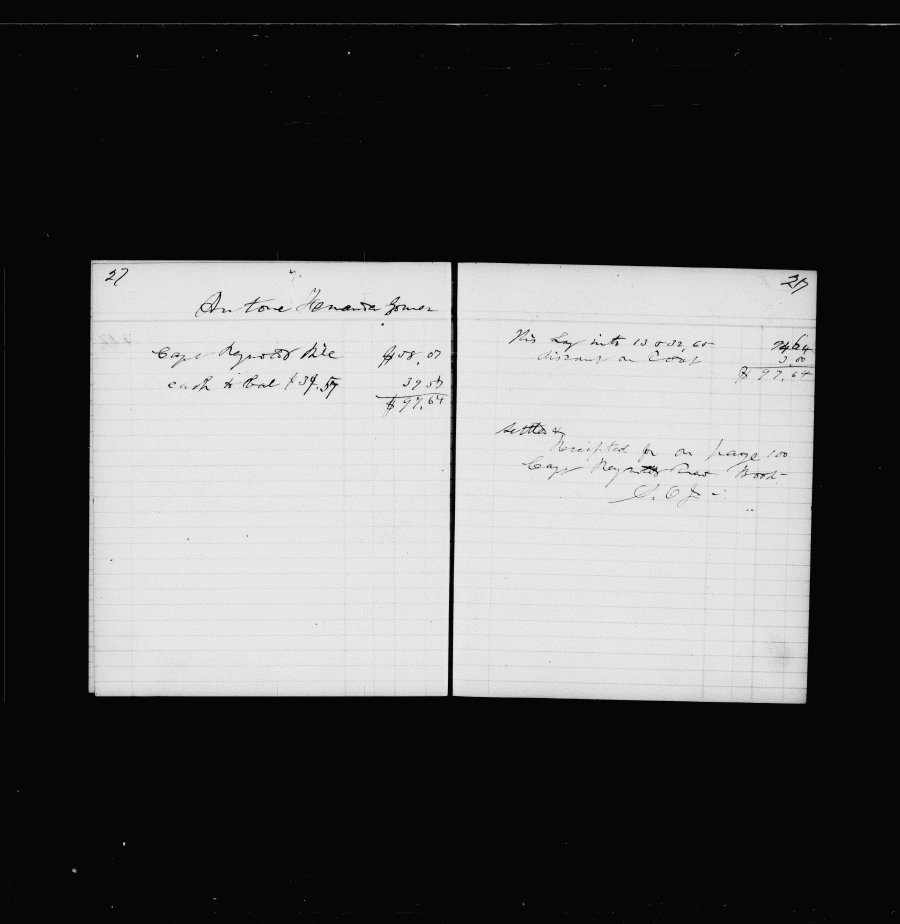 27
Antone Fernandes Gomes
Capt Reynolds Bill $58,07
cash to bal $39.57 39 57
$97,64
27
His Lay into 13032,60 94 64
discount on Coat 3,00
$97,64
settled &
Receipted for on page 100
Capt Reynolds Crew Book-